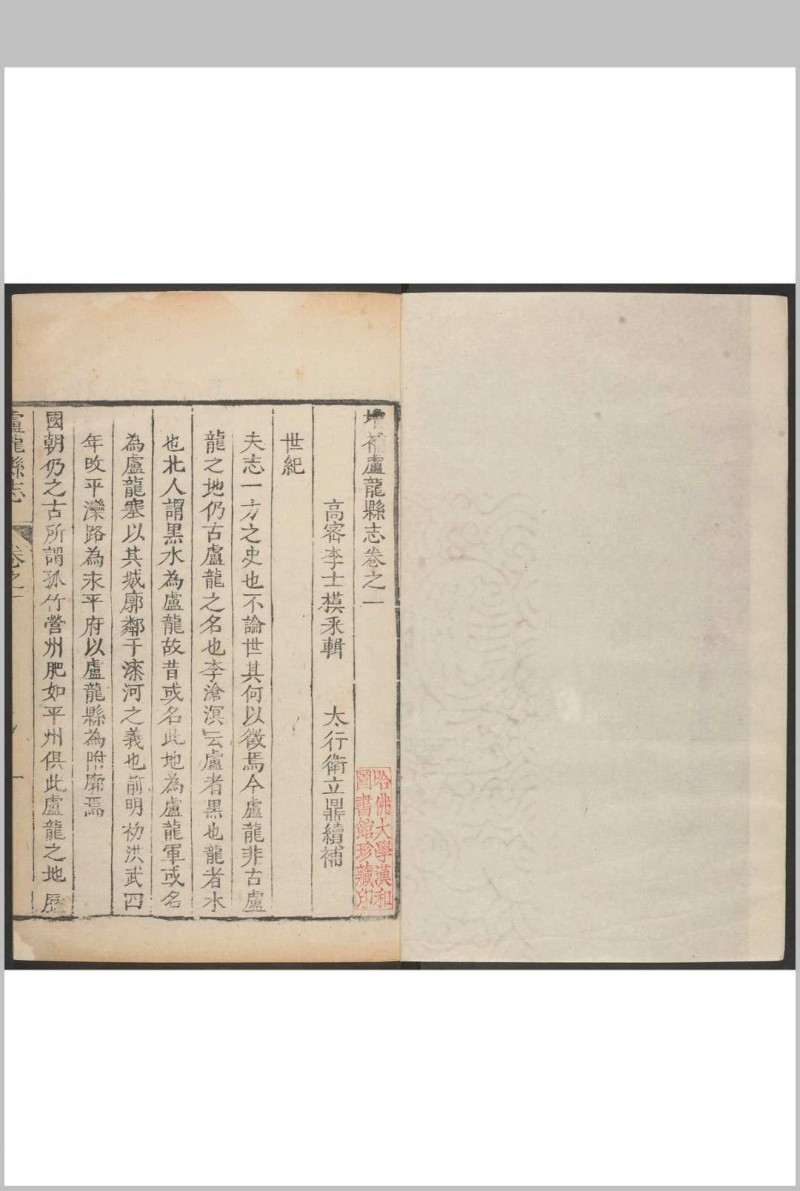 增補盧龍縣志卷之一
高密李士模釆輯 太行衛立鼎續補
世紀
夫志一方之史也不論世其何以徵焉今盧龍非古盧
龍之地仍古盧龍之名也李滄溟云盧者黑也龍者水
也北人謂黑水為盧龍故昔或名此地為盧龍軍或名
為盧龍塞以其城廓鄰于漆河之義也前明初洪武四
年攺平灤路為永平府以盧龍縣為附廓焉
國朝仍之古所謂孤竹營州肥如平州俱此盧龍之地歷
盧龍縣志 卷之一 一
哈佛大學漢和
圖書館珍藏印